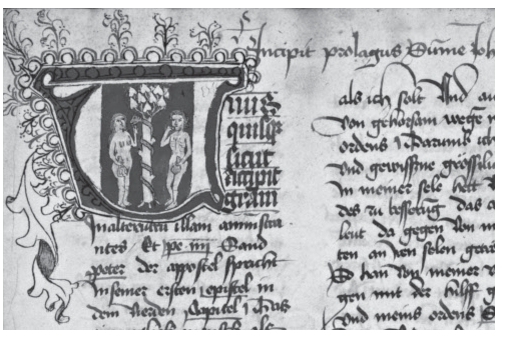 Incipit prologus Sume Joh
Unus
quisqz
sicut
accipit
gram
In alterutru illam aministra
ntes Et pe iiij Sand
peter der appostel spricht
In seiner ersten epistel in
dem vierden Capitel Das
als ich solt Und au
von gehorsam wegen
ordens Darumb ich
und gewissne
In meiner sele hett
des zu besserug das
leut da gegen von
ten an iren selen
Es han von meiner
gen mit der hilff g
Und meins ordens